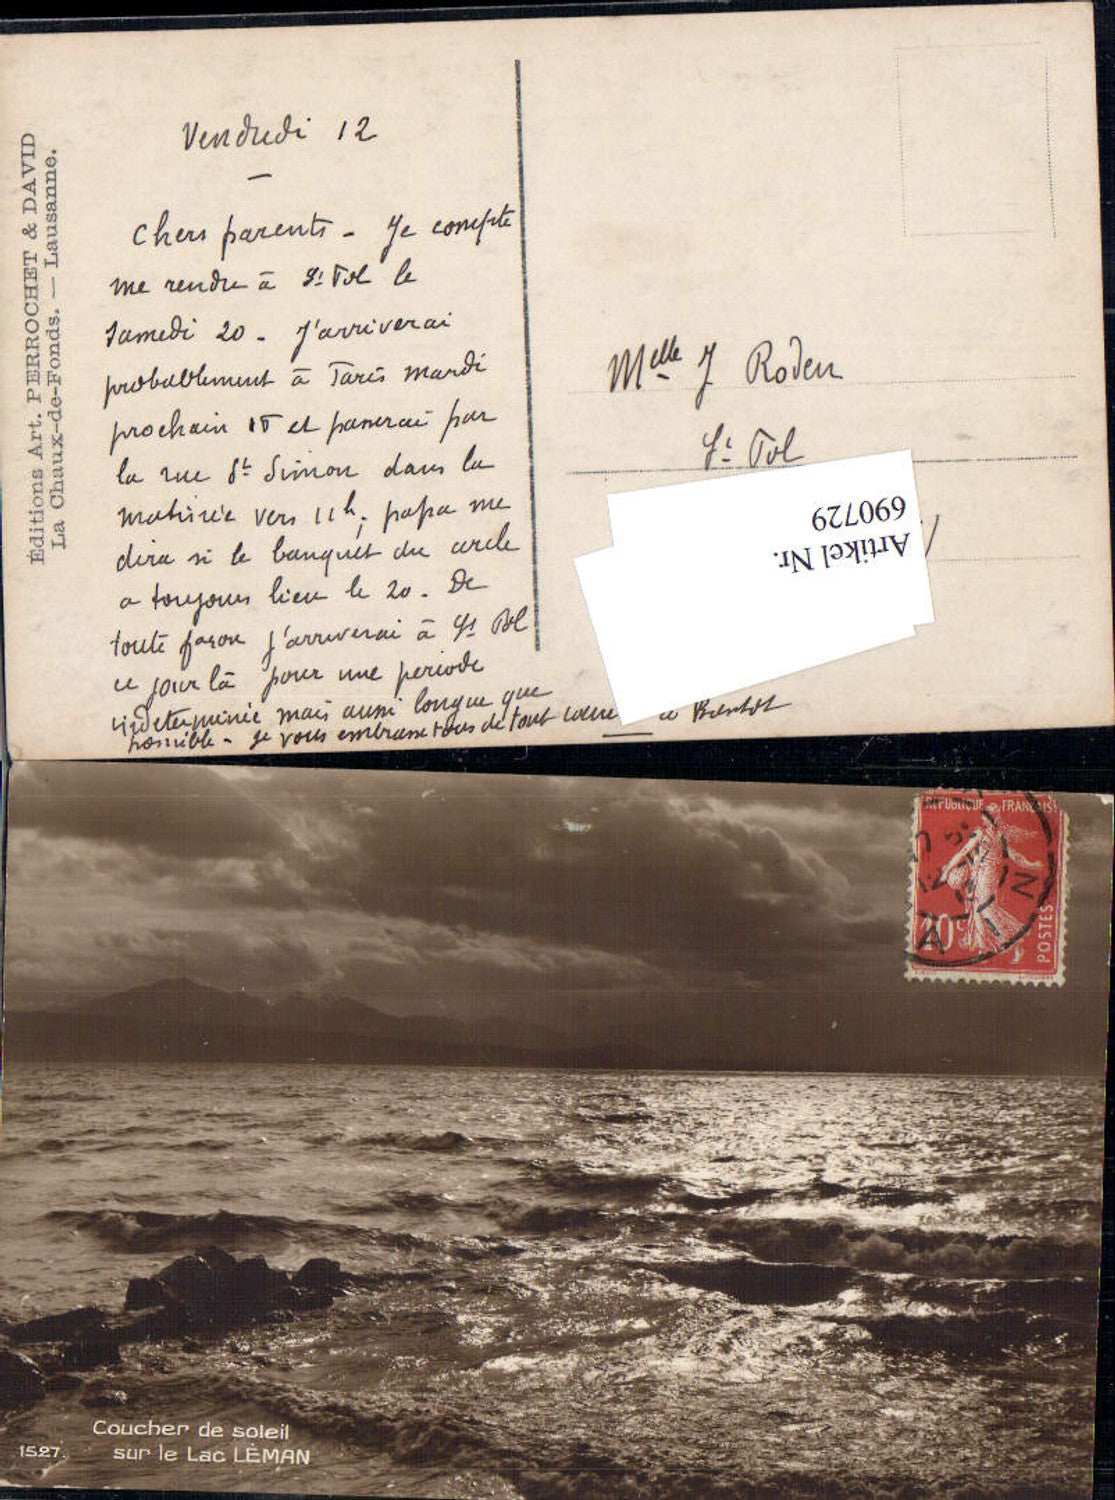 Éditions Art. PERROCHET & DAVID
La Chaux-de-Fonds. — Lausanne.
Vendredi 12
—
Chers parents - Je compte
me rendre à St Pol le
Samedi 20 - J'arriverai
probablement à Paris mardi
prochain et passerai par
la rue St Simon dans la
matinée vers 11h, papa me
dira si le banquet du cercle
a toujours lieu le 20 - De
toute façon j'arriverai à St Pol
ce jour là pour une periode
indeterminée mais aussi longue que
possible - je vous embrasse tous de tout coeur à Bientôt
Melle J Roden
St Pol
Artikel Nr.
690729
REPUBLIQUE FRANÇAISE
10c
POSTES
Coucher de soleil
sur le Lac LÉMAN
1527.